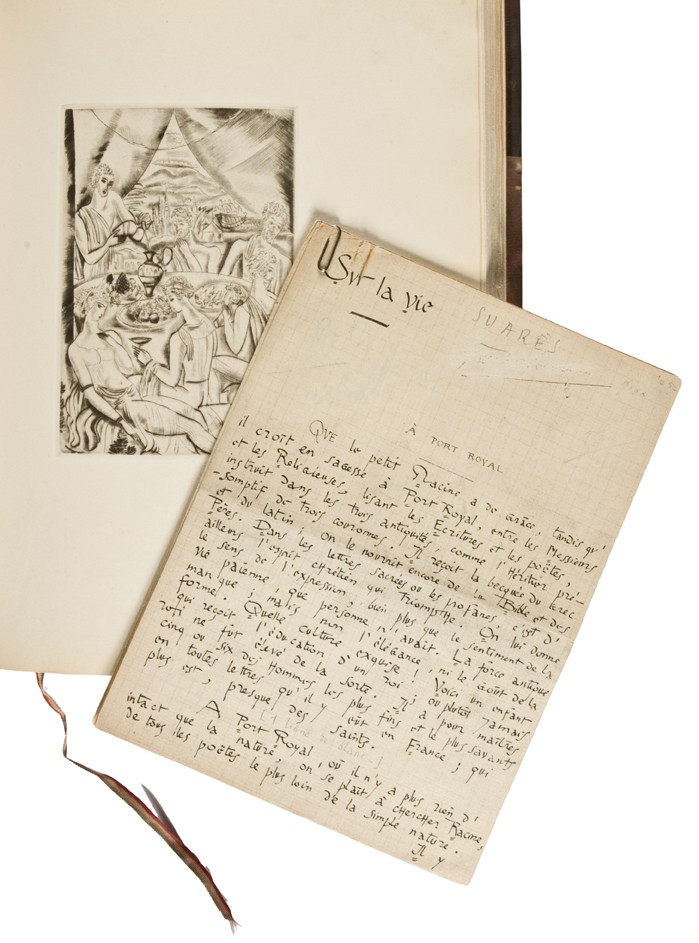 Sur la vie
SUARÈS
À PORT ROYAL
QUE le petit Racine a de grâce, tandis qu'
il croît en sagesse à Port Royal, entre les Messieurs
et les Religieuses, lisant les Écritures et les poëtes,
instruit dans les trois antiquités, comme l'héritier pré-
-somptif de trois couronnes. Il reçoit la becquée du Grec
et du latin ; on le nourrit encore de la Bible et des
Pères. Dans les lettres sacrées ou les profanes, c'est d'
ailleurs l'esprit chrétien qui triomphe. On lui donne
le sens de l'expression, bien plus que le sentiment de la
vie païenne, que personne n'avait. La force antique
manque ; mais non l'élégance, ni le goût de la
forme. Quelle culture exquise ! Voici un enfant
qui reçoit l'éducation d'un roi ; ou plutôt jamais
roi ne fut élevé de la sorte. Il a pour maîtres
cinq ou six des hommes les plus fins et le plus savants
en toutes lettres qu'il y eût en France ; qui
plus est, presque des saints.
A Port Royal, où il n'y a plus rien d'
intact que la nature, on se plaît à chercher Racine,
de tous les poëtes le plus loin de la simple nature.
Il y